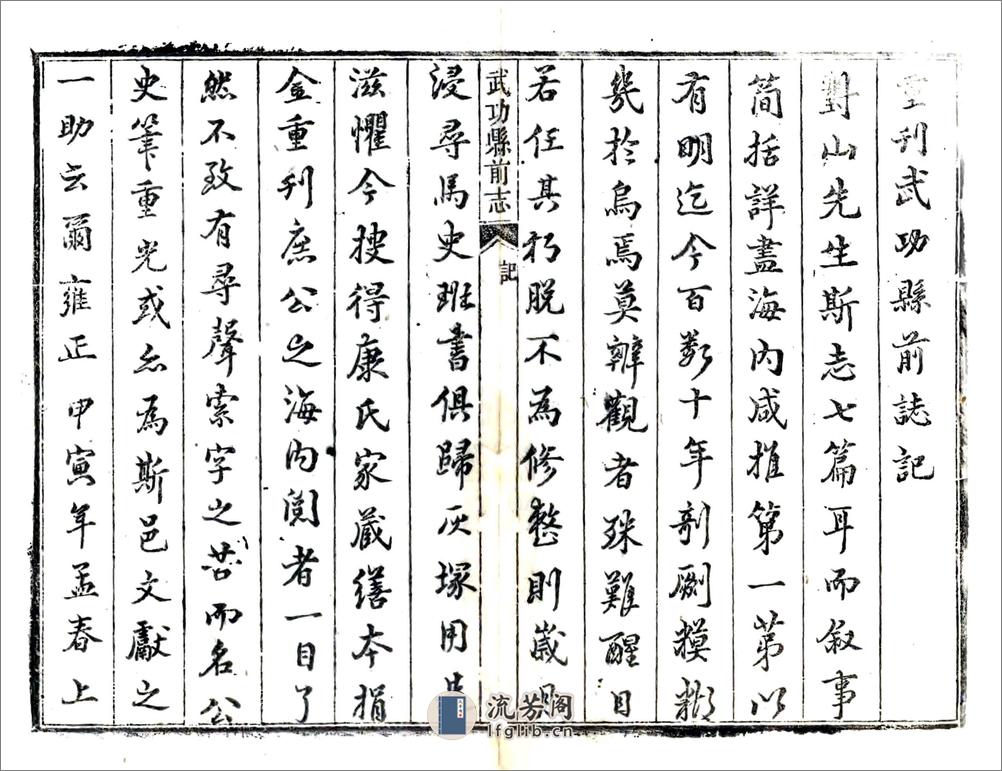 重刊武功縣前誌記
對山先生斯志七篇耳而敘事
簡括詳盡海內咸推第一第以
有明迄今百數十年剞劂糢糊
幾於烏焉莫辨觀者殊難醒目
若任其朽脫不為修整則歲月
武功縣前志
記
浸尋馬史班書俱歸灰塚用是
滋懼今搜得康氏家藏繕本捐
金重刊庶公之海內閱者一目了
然不致有尋聲索字之苦而名公
史筆重光或亦為斯邑文獻之
一助云爾雍正甲寅年孟春上
流芳阁
lfglib.cn